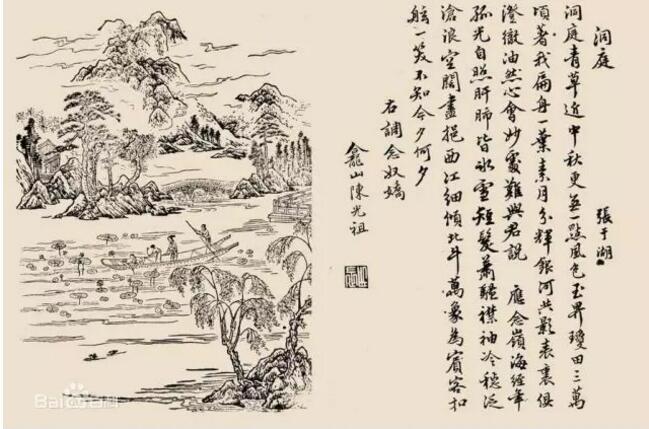 洞庭 張于湖
洞庭青草近中秋更無一點風色玉界瓊田三萬
頃著我扁舟一葉素月分輝銀河共影表裏俱
澄徹油然心會妙處難與君說 應念嶺海經年
孤光自照肝肺皆冰雪短髮蕭騷襟袖冷穩泛
滄浪空闊盡挹西江細傾北斗萬象為賓客扣
舷一笑不知今夕何夕
右調念奴嬌
龕山陳光祖
Bai百科